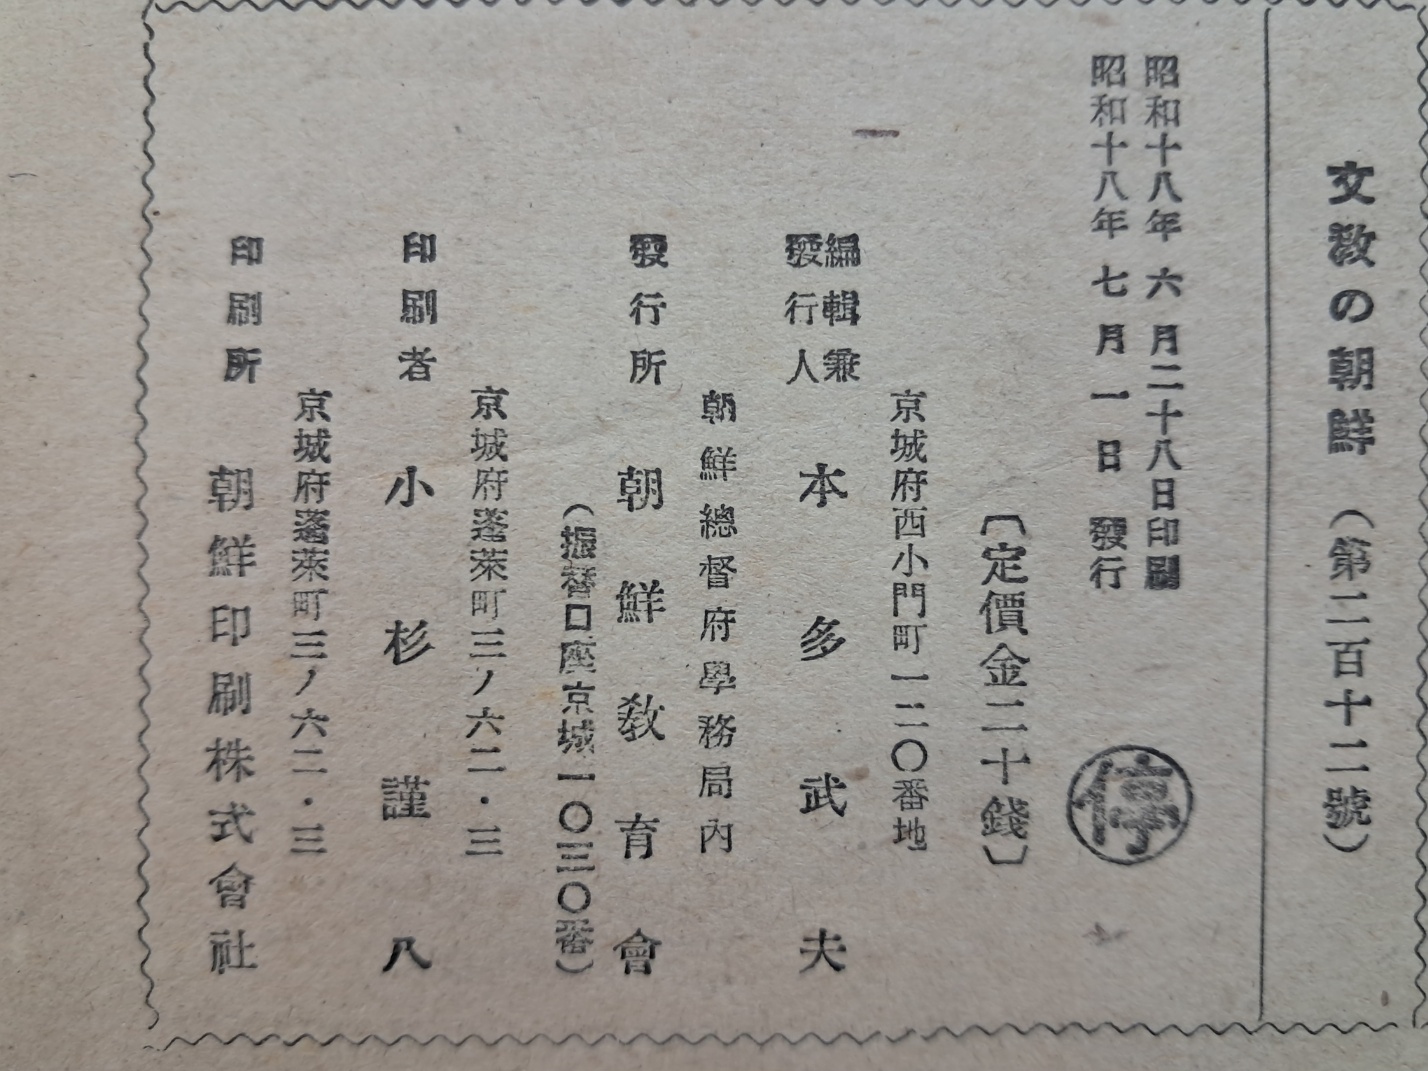 文敎の朝鮮（第二百十二號）
昭和十八年六月二十八日印刷
昭和十八年七月一日發行
停
〔定價金二十錢〕
京城府西小門町一二〇番地
編輯兼
發行人
本多武夫
朝鮮總督府學務局內
發行所　朝鮮敎育會
（振替口座京城一〇三〇番）
京城府蓬萊町三ノ六二・三
印刷者　小杉謹八
京城府蓬萊町三ノ六二・三
印刷所　朝鮮印刷株式會社